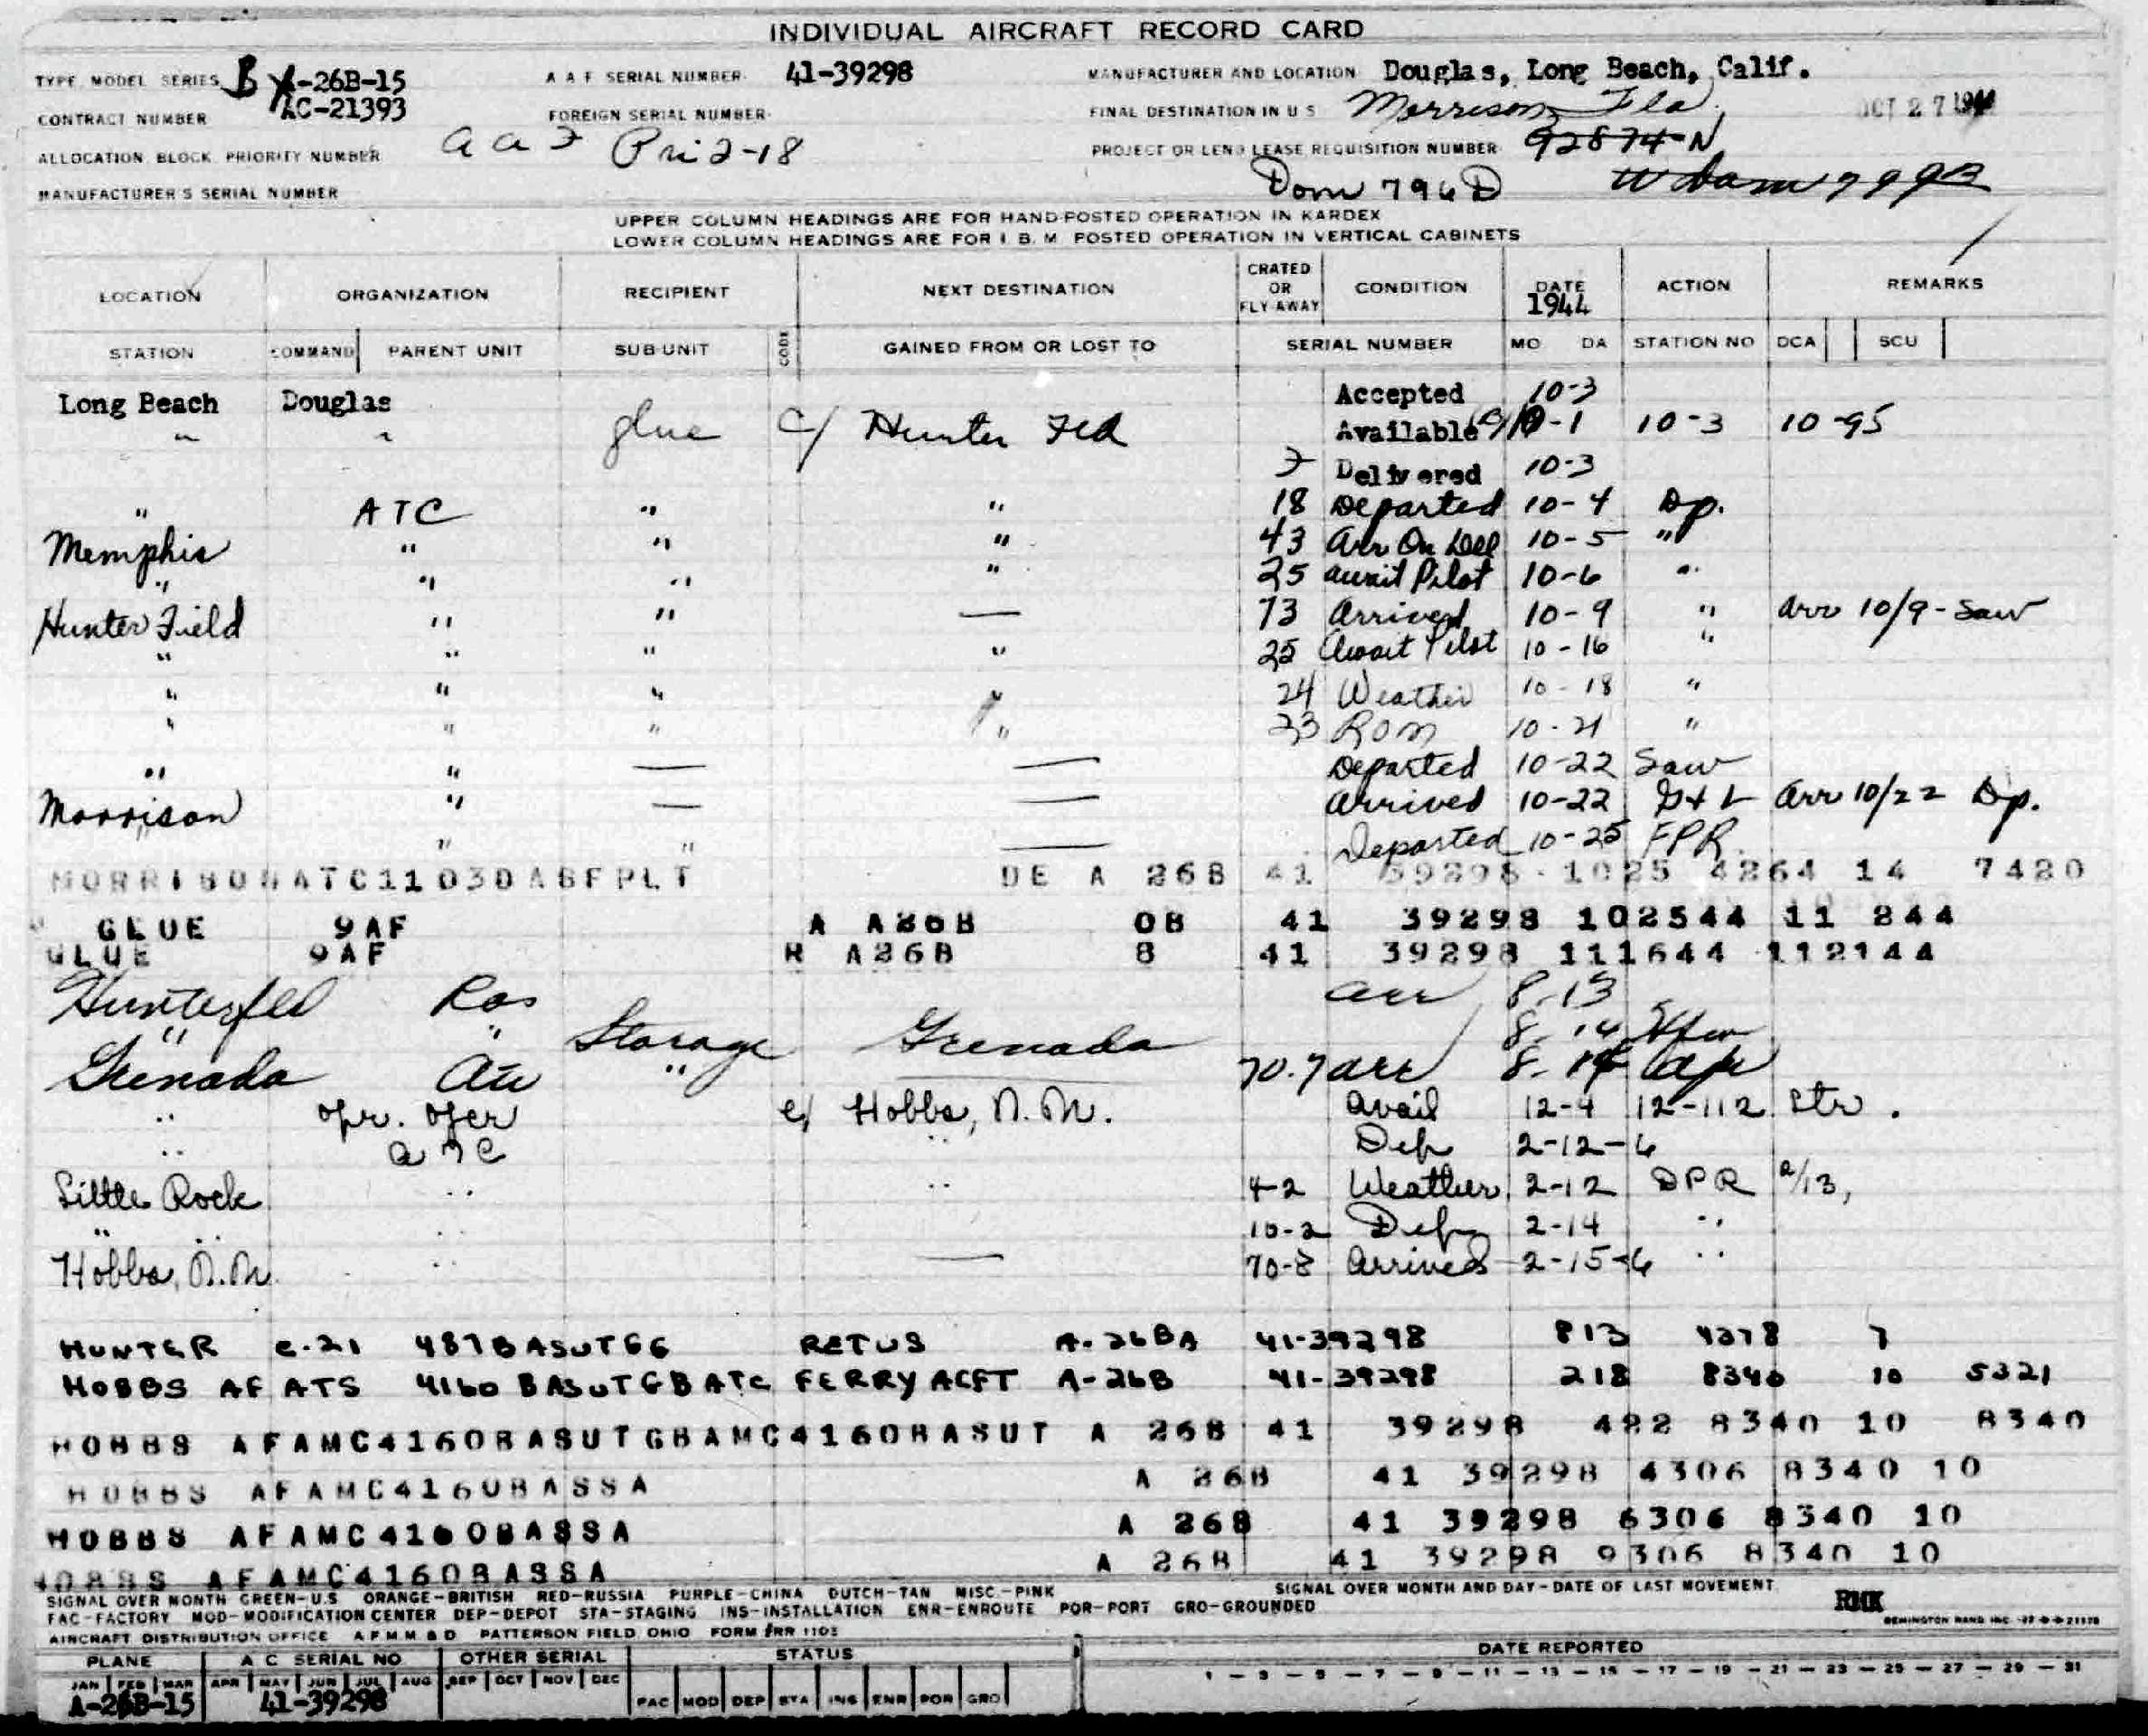 INDIVIDUAL AIRCRAFT RECORD CARD
TYPE MODEL SERIES B A-26B-15 A A F SERIAL NUMBER 41-39298 MANUFACTURER AND LOCATION Douglas, Long Beach, Calif.
CONTRACT NUMBER AC-21393 FOREIGN SERIAL NUMBER FINAL DESTINATION IN U S Morrison, Fla. OCT 27 1944
ALLOCATION BLOCK PRIORITY NUMBER a a F Pri 2-18 PROJECT OR LEND LEASE REQUISITION NUMBER 92874-N
MANUFACTURER'S SERIAL NUMBER Dom 796D
UPPER COLUMN HEADINGS ARE FOR HAND-POSTED OPERATION IN KARDEX
LOWER COLUMN HEADINGS ARE FOR I. B. M. POSTED OPERATION IN VERTICAL CABINETS
LOCATION ORGANIZATION RECIPIENT NEXT DESTINATION CRATED OR FLY-AWAY CONDITION DATE 1944 ACTION REMARKS
STATION COMMAND PARENT UNIT SUB-UNIT CODE GAINED FROM OR LOST TO SERIAL NUMBER MO DA STATION NO DCA SCU
Long Beach Douglas Accepted 10-3
" " glue c/ Hunter Fld Available 10-1 10-3 10-95
F Delivered 10-3
" ATC " " 18 Departed 10-4 Dp.
Memphis " " " 43 Arr On Del 10-5 "
" " " " 25 Await Pilot 10-6 "
Hunter Field " " — 73 Arrived 10-9 " Arr 10/9-Saw
" " " " 25 Await Pilot 10-16 "
" " " " 24 Weather 10-18 "
" " " " 33 RON 10-21 "
" " — — Departed 10-22 Saw
Morrison " — — Arrived 10-22 G+L Arr 10/22 Dp.
" " " — Departed 10-25 FPR
MORRISON ATC11 03DABFPLT DE A 26B 41 39298 1025 4264 14 7420
GLUE 9AF A A26B OB 41 39298 102544 11 244
GLUE 9AF R A26B B 41 39298 111644 112144
Hunterfld Ros arr 8-13
" " Storage Grenada 8-14
Grenada " — 70.7 arr 8-14
" opr. ofcr e/ Hobbs, N.M. Avail 12-4 12-112 Str.
" A T C " Dep 2-12-6
Little Rock " " 4-2 Weather 2-12 DPR 2/13,
" " " 10-2 Dep 2-14 "
Hobbs, N.M. " — 70-8 Arrived 2-15-6 "
HUNTER C-21 487BASUTGG RETUS A-26BA 41-39298 813 4378 7
HOBBS AF ATS 4160 BASUTGBATC FERRY ACFT A-26B 41-39298 218 8340 10 5321
HOBBS AFAMC4160BASUTGBAMC4160BASUT A 26B 41 39298 422 8340 10 8340
HOBBS AFAMC4160BASSA A 26B 41 39298 4306 8340 10
HOBBS AFAMC4160BASSA A 26B 41 39298 6306 8340 10
HOBBS AFAMC4160BASSA A 26B 41 39298 9306 8340 10
SIGNAL OVER MONTH GREEN-U.S ORANGE-BRITISH RED-RUSSIA PURPLE-CHINA DUTCH-TAN MISC.-PINK SIGNAL OVER MONTH AND DAY-DATE OF LAST MOVEMENT
FAC-FACTORY MOD-MODIFICATION CENTER DEP-DEPOT STA-STAGING INS-INSTALLATION ENR-ENROUTE POR-PORT GRO-GROUNDED
AIRCRAFT DISTRIBUTION OFFICE A F M M B D PATTERSON FIELD OHIO FORM PRR 1103 REMINGTON RAND INC.
PLANE A C SERIAL NO OTHER SERIAL STATUS DATE REPORTED
JAN FEB MAR APR MAY JUN JUL AUG SEP OCT NOV DEC 1 — 3 — 5 — 7 — 9 — 11 — 13 — 15 — 17 — 19 — 21 — 23 — 25 — 27 — 29 — 31
A-26B-15 41-39298 FAC MOD DEP STA INS ENR POR GRO